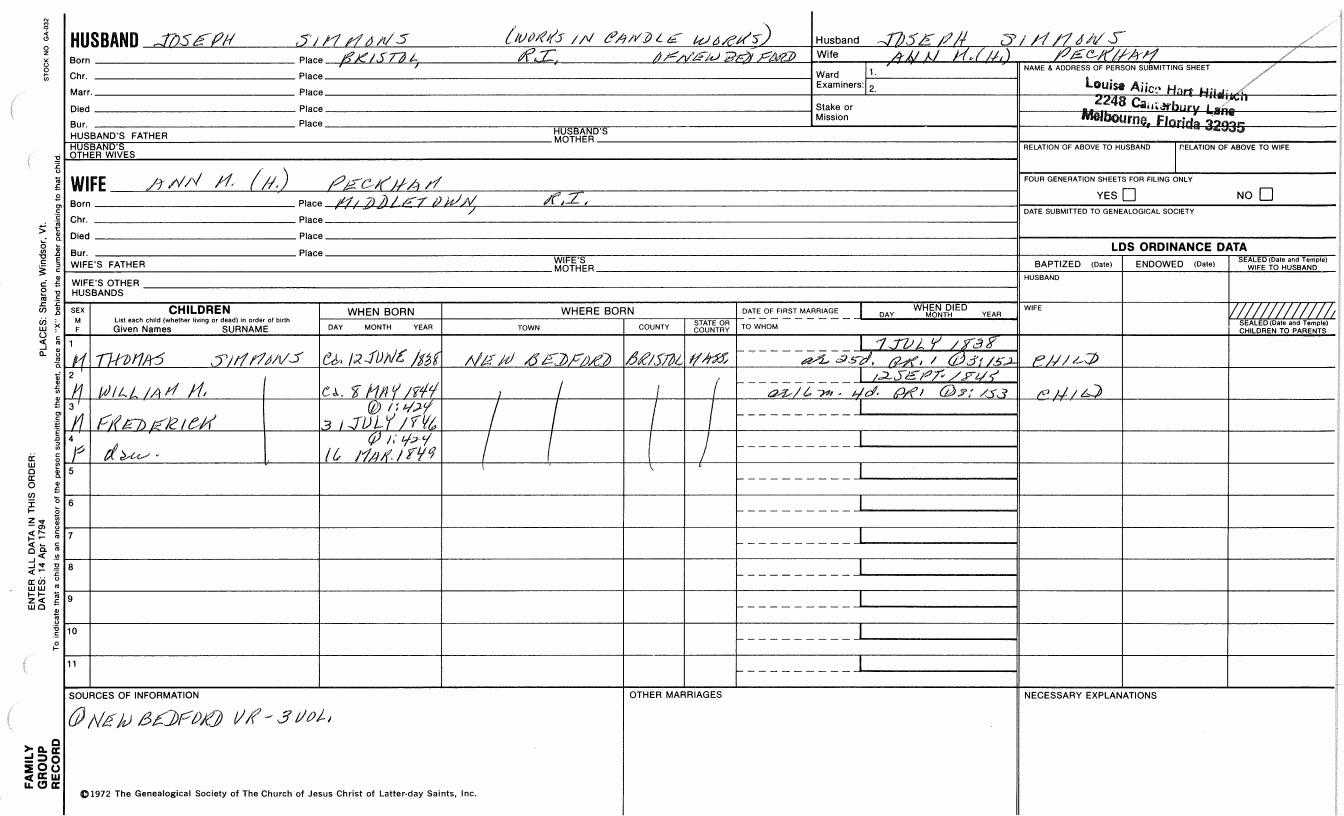 STOCK NO GA-032
HUSBAND JOSEPH SIMMONS (WORKS IN CANDLE WORKS)
Born Place BRISTOL, R.I. OF NEW BEDFORD
Chr. Place
Marr. Place
Died Place
Bur. Place
HUSBAND'S FATHER HUSBAND'S MOTHER
HUSBAND'S OTHER WIVES
WIFE ANN M. (H.) PECKHAM
Born Place MIDDLETOWN, R.I.
Chr. Place
Died Place
Bur. Place
WIFE'S FATHER WIFE'S MOTHER
WIFE'S OTHER HUSBANDS
Husband JOSEPH SIMMONS
Wife ANN M.(H.) PECKHAM
Ward Examiners: 1.
2.
Stake or Mission
NAME & ADDRESS OF PERSON SUBMITTING SHEET
Louise Alice Hart Hilditch
2248 Canterbury Lane
Melbourne, Florida 32935
RELATION OF ABOVE TO HUSBAND RELATION OF ABOVE TO WIFE
FOUR GENERATION SHEETS FOR FILING ONLY
YES NO
DATE SUBMITTED TO GENEALOGICAL SOCIETY
LDS ORDINANCE DATA
BAPTIZED (Date) ENDOWED (Date) SEALED (Date and Temple) WIFE TO HUSBAND
HUSBAND
WIFE
SEALED (Date and Temple) CHILDREN TO PARENTS
SEX M F CHILDREN WHEN BORN WHERE BORN DATE OF FIRST MARRIAGE WHEN DIED
List each child (whether living or dead) in order of birth
Given Names SURNAME DAY MONTH YEAR TOWN COUNTY STATE OR COUNTRY TO WHOM DAY MONTH YEAR
1 7 JULY 1838
M THOMAS SIMMONS Ca. 12 JUNE 1838 NEW BEDFORD BRISTOL MASS. ae 25d. PR.1 @3:152 CHILD
2 12 SEPT. 1845
M WILLIAM M. Ca. 8 MAY 1844 ae 16 m. 4d. PR1 @3:153 CHILD
3 @ 1:424
M FREDERICK 31 JULY 1846
4 @ 1:424
F dau. 16 MAR. 1849
5
6
7
8
9
10
11
SOURCES OF INFORMATION OTHER MARRIAGES NECESSARY EXPLANATIONS
① NEW BEDFORD VR - 3 VOL.
©1972 The Genealogical Society of The Church of Jesus Christ of Latter-day Saints, Inc.
PLACES: Sharon, Windsor, Vt.
ENTER ALL DATA IN THIS ORDER:
DATES: 14 Apr 1794
To indicate that a child is an ancestor of the person submitting the sheet, place an "X" behind the number pertaining to that child.
FAMILY GROUP RECORD